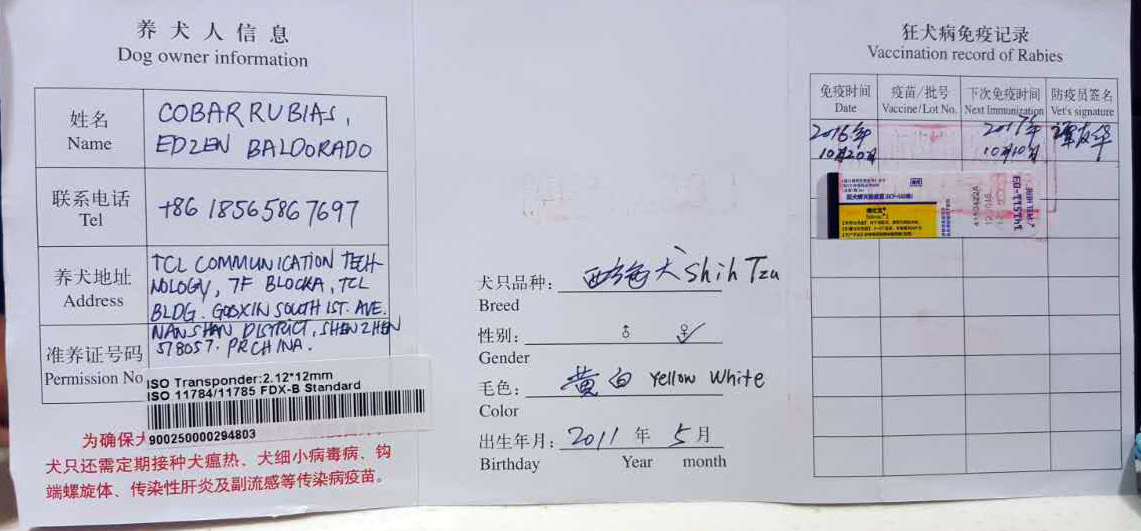 养犬人信息
Dog owner information
姓名
Name
COBARRUBIAS,
EDZEN BALDORADO
联系电话
Tel
+86 18565867697
养犬地址
Address
TCL COMMUNICATION TECH-
NOLOGY, 7F BLOCKA, TCL
BLDG. GAOXIN SOUTH 1ST. AVE.
NANSHAN DISTRICT, SHENZHEN
518057. PRCHINA.
准养证号码
Permission No
ISO Transponder:2.12*12mm
ISO 11784/11785 FDX-B Standard
900250000294803
为确保犬
犬只还需定期接种犬瘟热、犬细小病毒病、钩
端螺旋体、传染性肝炎及副流感等传染病疫苗。
犬只品种: 西施犬 Shih Tzu
Breed
性别: ♂ ♀
Gender
毛色: 黄白 Yellow White
Color
出生年月: 2011 年 5 月
Birthday Year month
狂犬病免疫记录
Vaccination record of Rabies
免疫时间 疫苗/批号 下次免疫时间 防疫员签名
Date Vaccine/Lot No. Next Immunization Vet's signature
2016年 2017年
10月20日 10月10日